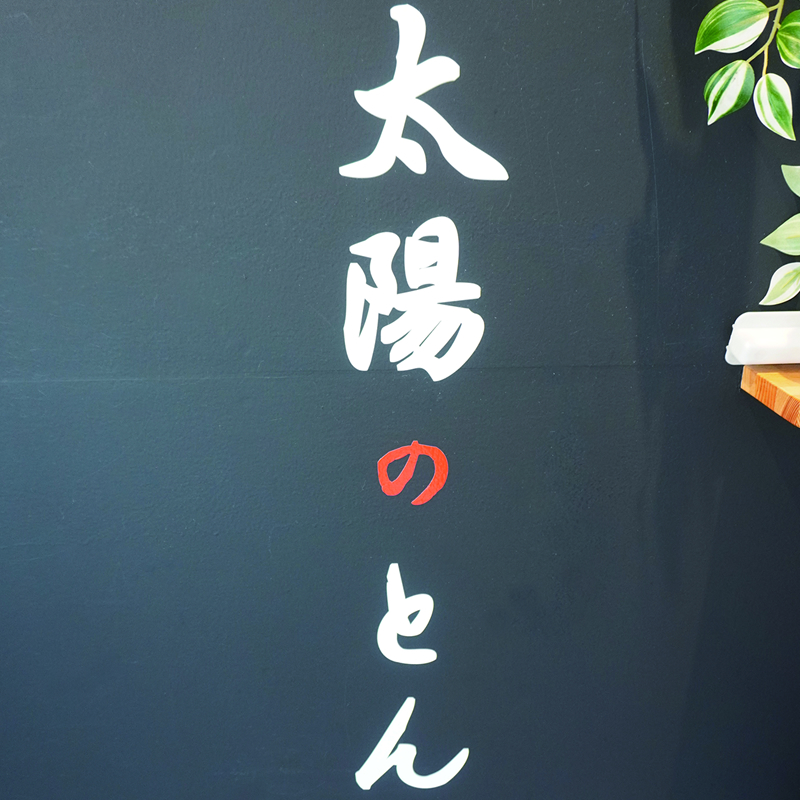 太陽のとん